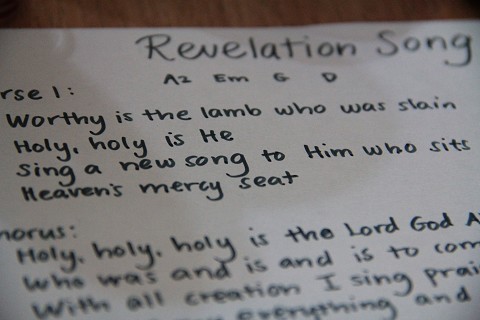 Revelation Song
A2 Em G D
rse 1:
Worthy is the lamb who was slain
Holy, holy is He
Sing a new song to Him who sits
Heaven's mercy seat
horus:
Holy, holy, holy is the Lord God A
who was and is and is to com
With all creation I sing prai
everything and